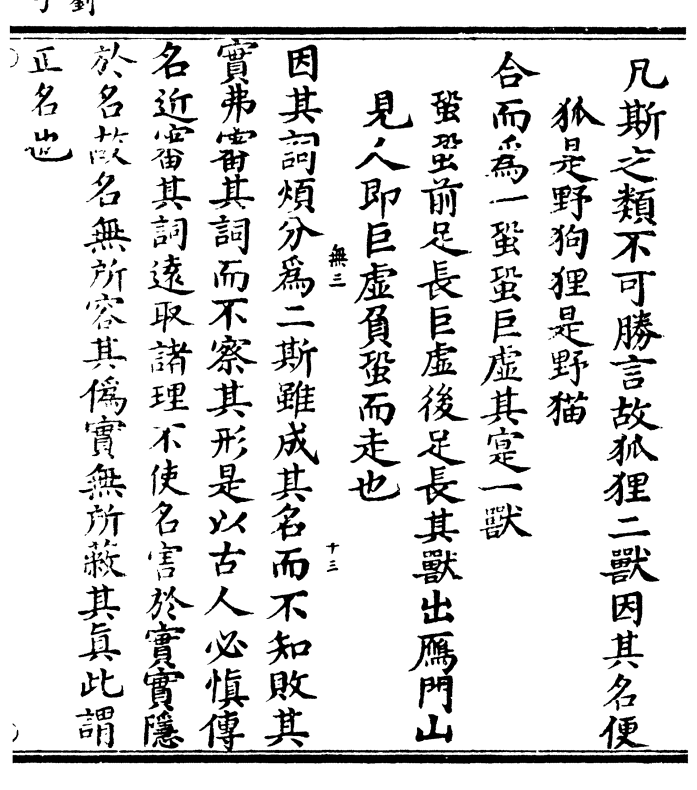 凡斯之類不可勝言故狐狸二獸因其名便
狐是野狗狸是野猫
合而爲一蛩蛩巨虛其寔一獸
蛩蛩前足長巨虛後足長其獸出鴈門山
見人即巨虛負蛩而走也
無三
十三
因其詞煩分爲二斯雖成其名而不知敗其
實弗審其詞而不察其形是以古人必慎傳
名近審其詞遠取諸理不使名害於實實隱
於名故名無所容其僞實無所蔽其眞此謂
正名也